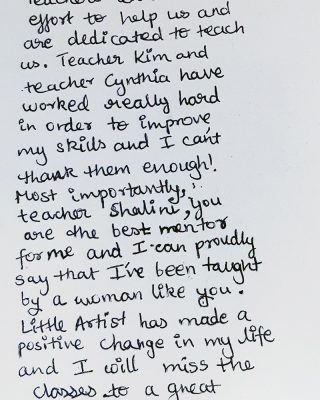 effort to help us and
are dedicated to teach
us. Teacher Kim and
teacher Cynthia have
worked really hard
in order to improve
my skills and I can't
thank them enough!
Most importantly,
teacher Shalini, you
are the best mentor
for me and I can proudly
say that I've been taught
by a woman like you.
Little Artist has made a
positive change in my life
and I will miss the
classes to a great